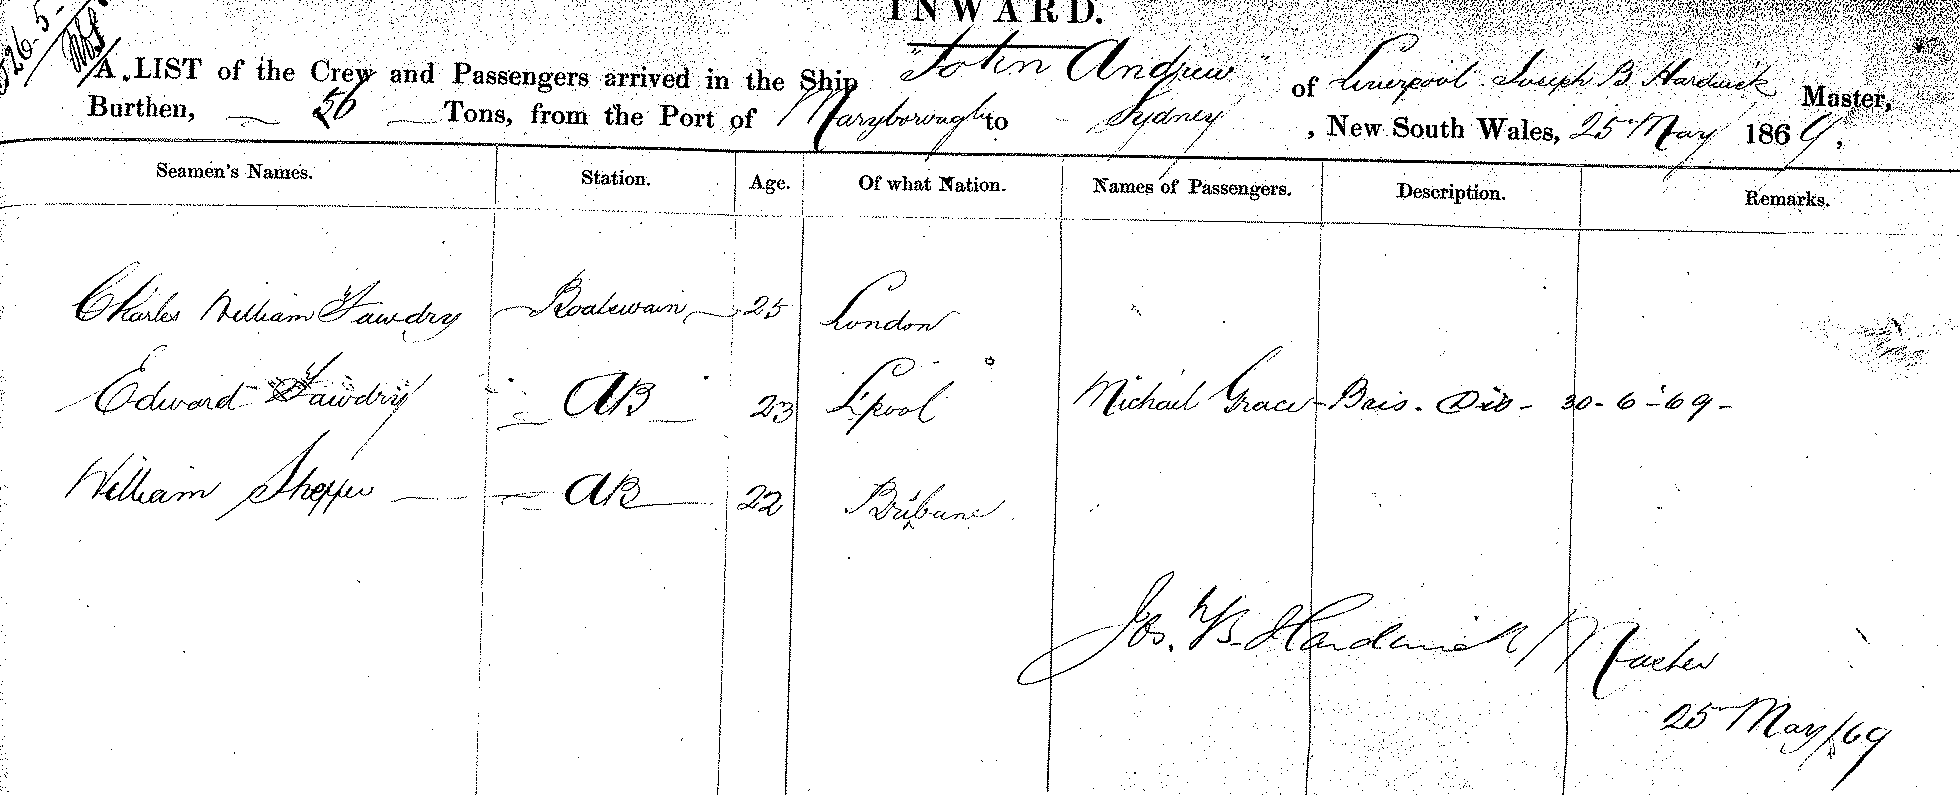 INWARD.
A LIST of the Crew and Passengers arrived in the Ship "John Andrew" of Liverpool Joseph B Hardwick Master,
Burthen, 56 Tons, from the Port of Maryborough to Sydney , New South Wales, 25 May 1869,
Seamen's Names. Station. Age. Of what Nation. Names of Passengers. Description. Remarks.
Charles William Fawdry Boatswain 25 London
Edward Fawdry AB 23 L'pool Michael Grace 30-6-69-
William AB 22 Brisbane
Jos. B. Hardwick / Master
25 May/69